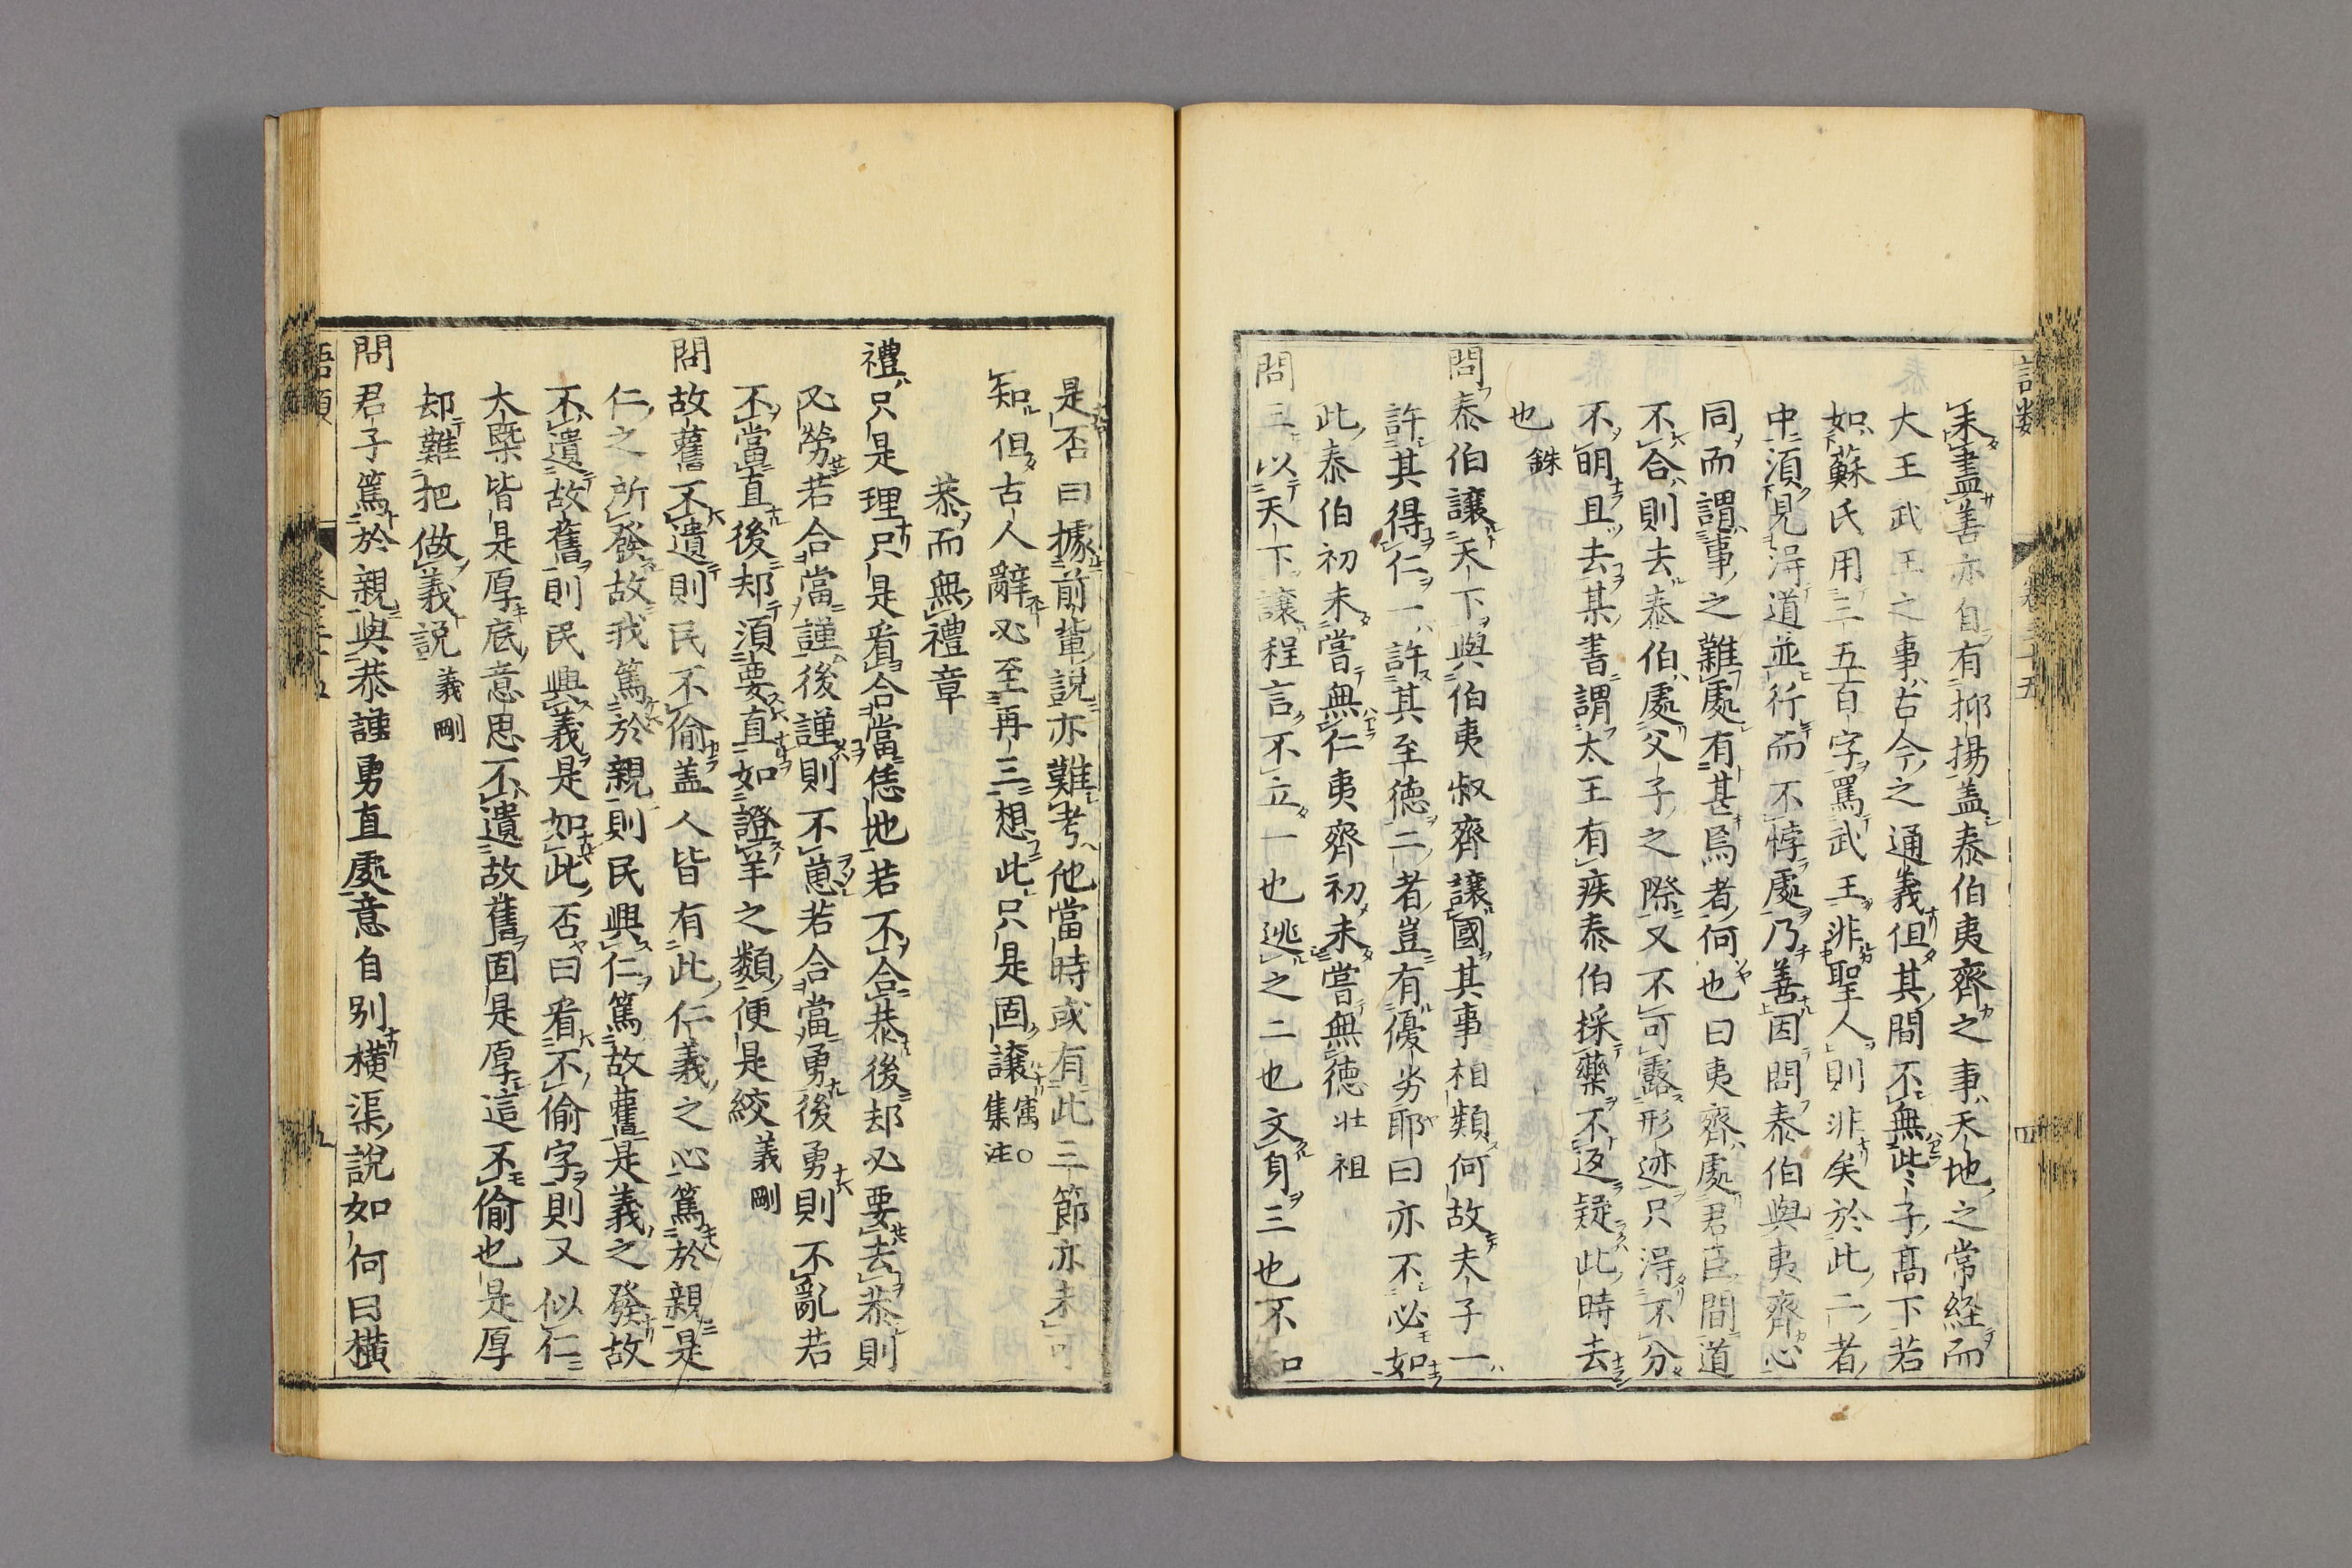 語類　卷三十五　四
未盡善亦自有抑揚盖泰伯夷齊之事天地之常経而
大王武王之事古今之通義但其間不無些子髙下若
如蘇氏用三五百字罵武王非聖人則非矣於此二者
中須見得道並行而不悖處乃善因問泰伯與夷齊心
同而謂事之難處有甚焉者何也曰夷齊處君臣間道
不合則去泰伯處父子之際又不可露形迹只得不分
不明且去某書謂太王有疾泰伯採藥不返疑此時去
也銖
問泰伯讓天下與伯夷叔齊讓國其事相類何故夫子一
許其得仁一許其至德二者豈有優劣耶曰亦不必如
此泰伯初未嘗無仁夷齊初未嘗無德壮祖
問三以天下讓程言不立一也逃之二也文身三也不
是否曰據前輩説亦難考他當時或有此三節亦未可
知但古人辭必至再三想此只是固讓㝢○集注
恭而無禮章
禮只是理只是㸔合當恁地若不合恭後却必要去恭則
必勞若合當謹後謹則不葸若合當勇後勇則不亂若
不當直後却須要直如證羊之類便是絞義剛
問故舊不遺則民不偷盖人皆有此仁義之心篤於親是
仁之所發故我篤於親則民興仁篤故舊是義之發故
不遺故舊則民興義是如此否曰㸔不偷字則又似仁
大槩皆是厚底意思不遺故舊固是厚這不偷也是厚
却難把做義説義剛
問君子篤於親與恭謹勇直處意自别橫渠說如何曰橫
語類　卷三十五